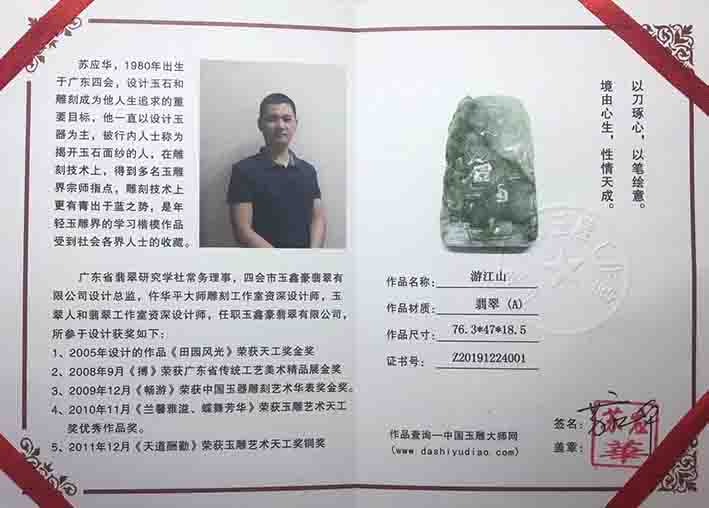 苏应华，1980年出生
于广东四会，设计玉石和
雕刻成为他人生追求的重
要目标，他一直以设计玉
器为主，被行内人士称为
揭开玉石面纱的人，在雕
刻技术上，得到多名玉雕
界宗师指点，雕刻技术上
更有青出于蓝之势，是年
轻玉雕界的学习楷模作品
受到社会各界人士的收藏。
广东省翡翠研究学社常务理事，四会市玉鑫豪翡翠有
限公司设计总监，仵华平大师雕刻工作室资深设计师，玉
翠人和翡翠工作室资深设计师，任职玉鑫豪翡翠有限公司，
所参于设计获奖如下：
1、2005年设计的作品《田园风光》荣获天工奖金奖
2、2008年9月《搏》荣获广东省传统工艺美术精品展金奖
3、2009年12月《畅游》荣获中国玉器雕刻艺术华表奖金奖。
4、2010年11月《兰馨雅溢、蝶舞芳华》荣获玉雕艺术天工
奖优秀作品奖。
5、2011年12月《天道酬勤》荣获玉雕艺术天工奖铜奖
以刀琢心，以笔绘意。
境由心生，性情天成。
作品名称： 游江山
作品材质： 翡翠（A）
作品尺寸： 76.3*47*18.5
证书号： Z20191224001
签名：
盖章：
作品查询一中国玉雕大师网
(www.dashiyudiao.com)